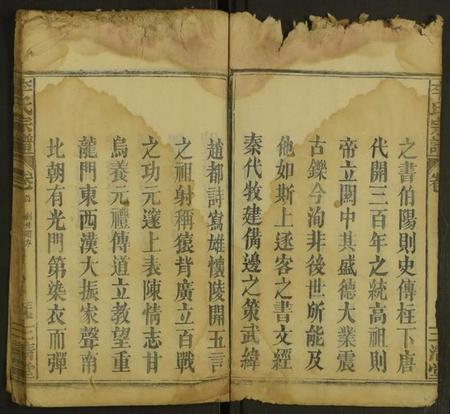 之書伯陽則史傳柱下唐
代開三百年之統高祖則
帝立關中其盛德大業震
古鑠今洵非後世所能及
他如斯上逐客之書文經
秦代牧建備邊之策武緯
趙都詩寫雄懷陵開五言
之祖射稱猿背廣立百戰
之功元邃上表陳情志甘
烏養元禮傳道立教望重
龍門東西漢大振家聲南
北朝有光門第染衣而彈
李氏宗譜
卷